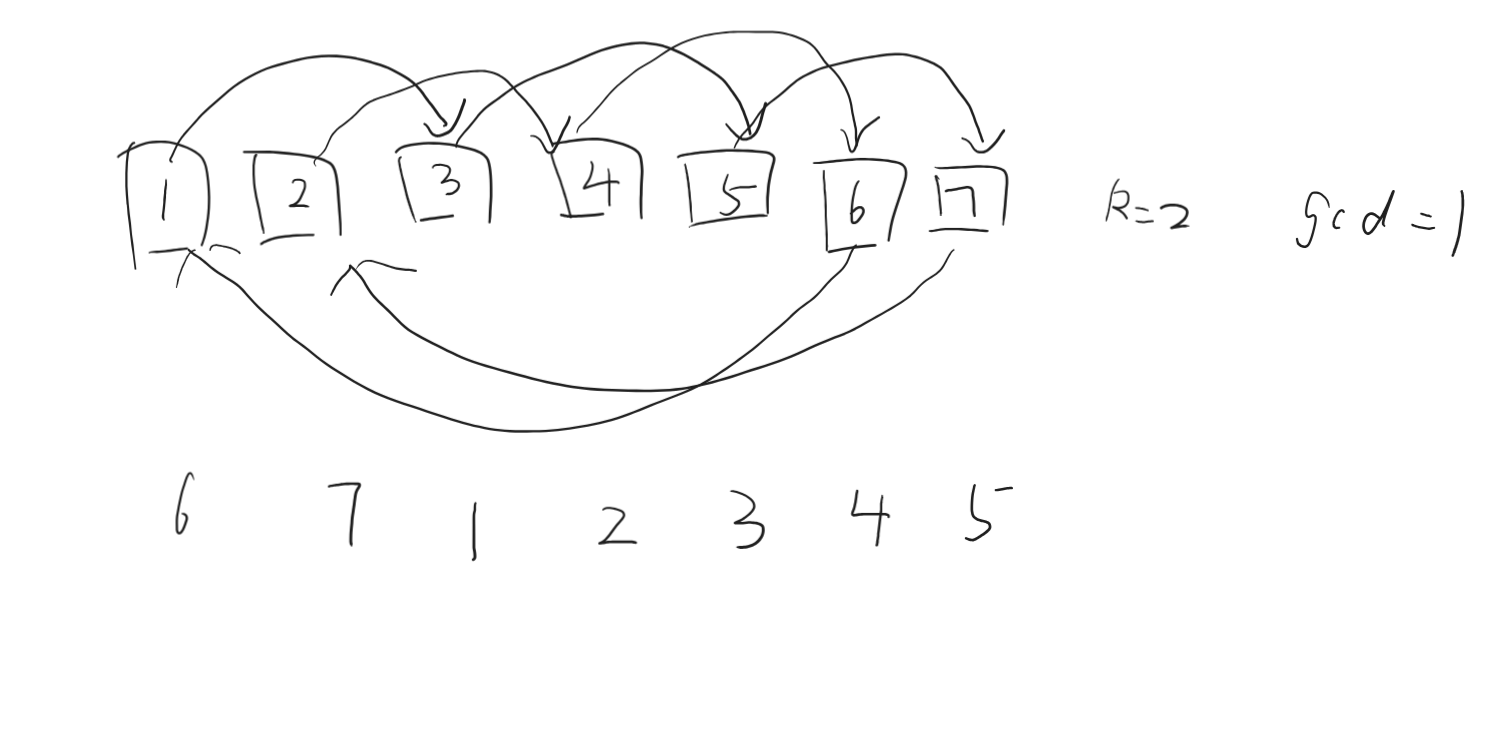 1 2 3 4 5 6 7 k=2 gcd=1
6 7 1 2 3 4 5